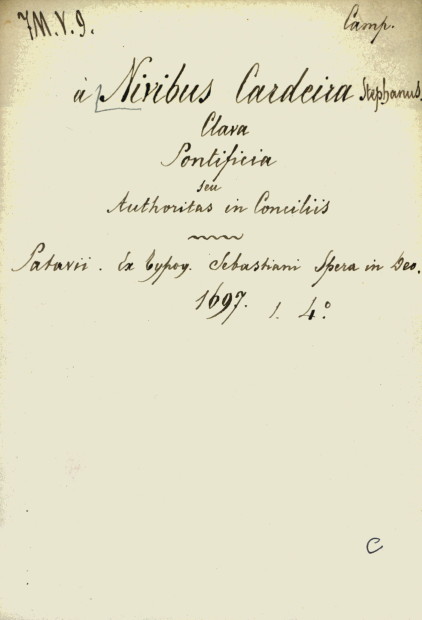 7M.V.9.
Camp.
à Nivibus Cardeira Stephanus.
Clava
Pontificia
seu
Authoritas in Conciliis
Patavii. Ex Typog. Sebastiani Spera in Deo.
1697. 1. 4°
C